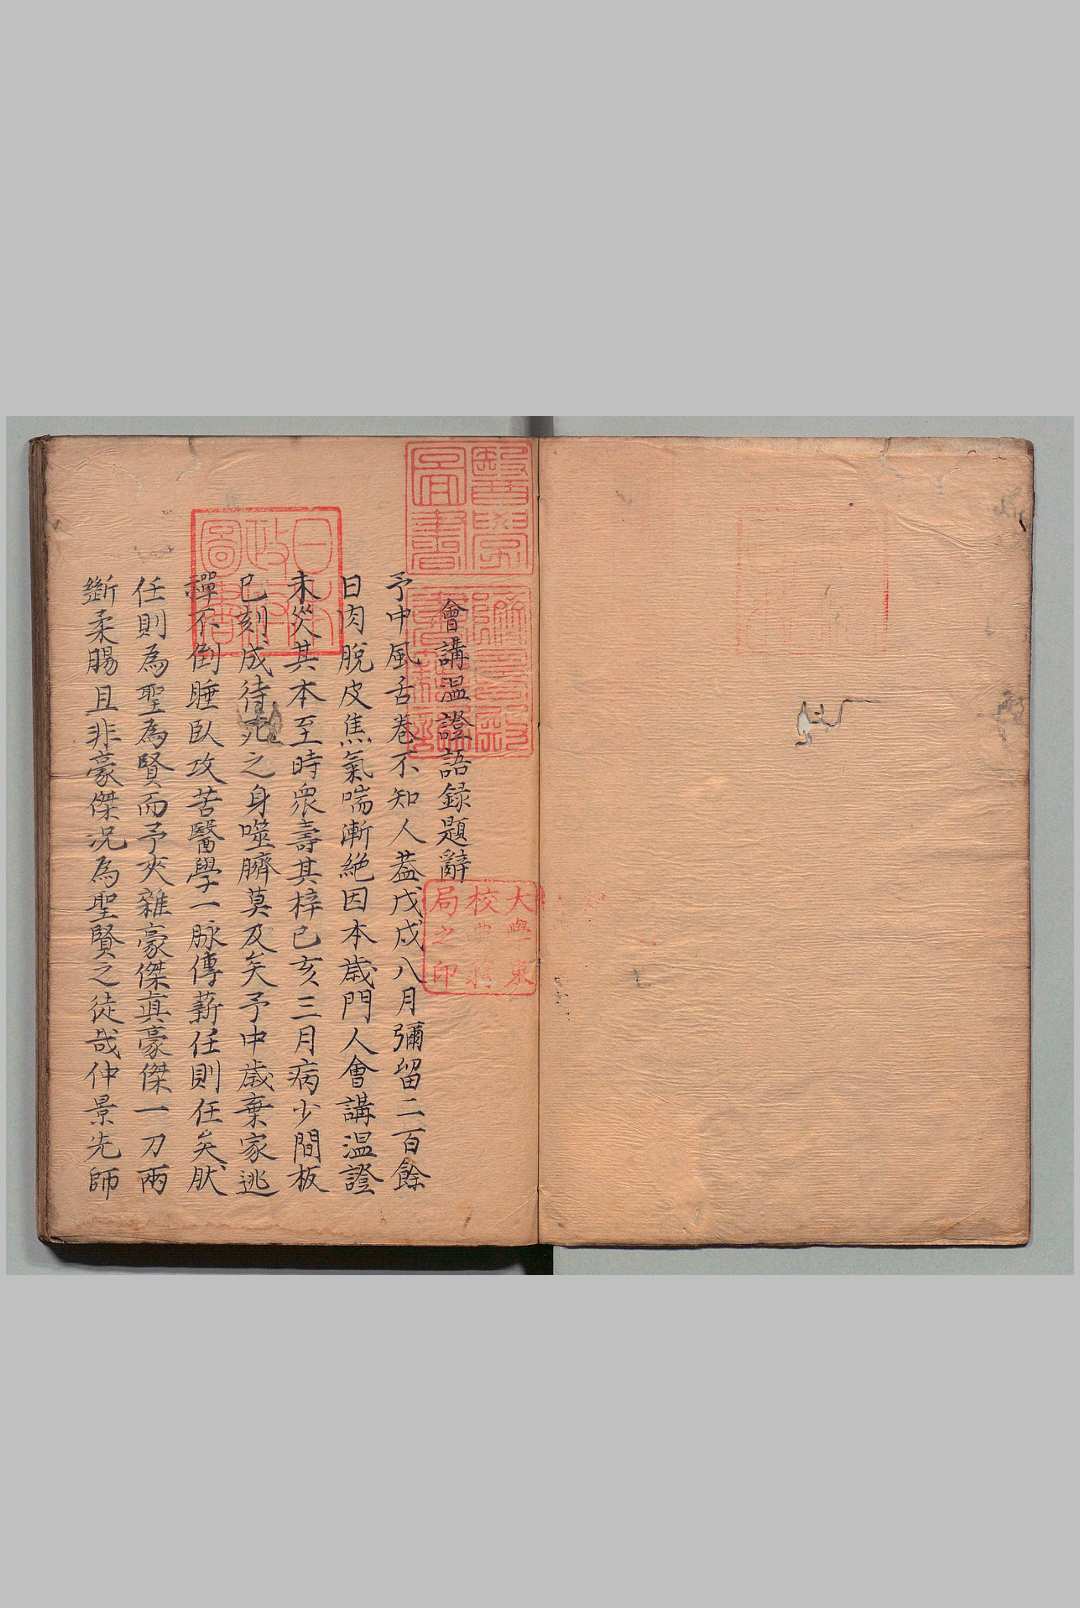 會講温證語録題辭
予中風舌卷不知人葢戊戌八月彌留二百餘
日肉脫皮焦氣喘漸絶因本歲門人會講温證
未災其本至時眾壽其梓己亥三月病少間板
已刻成待死之身噬臍莫及矣予中歲棄家逃
禪不倒睡臥攻苦醫學一脉傳薪任則任矣肰
任則為聖為賢而予夾雜豪傑真豪傑一刀兩
斷柔腸且非豪傑况為聖賢之徒㢤仲景先師
醫學圖書
日本政府圖書
大學東
校典籍
局之印